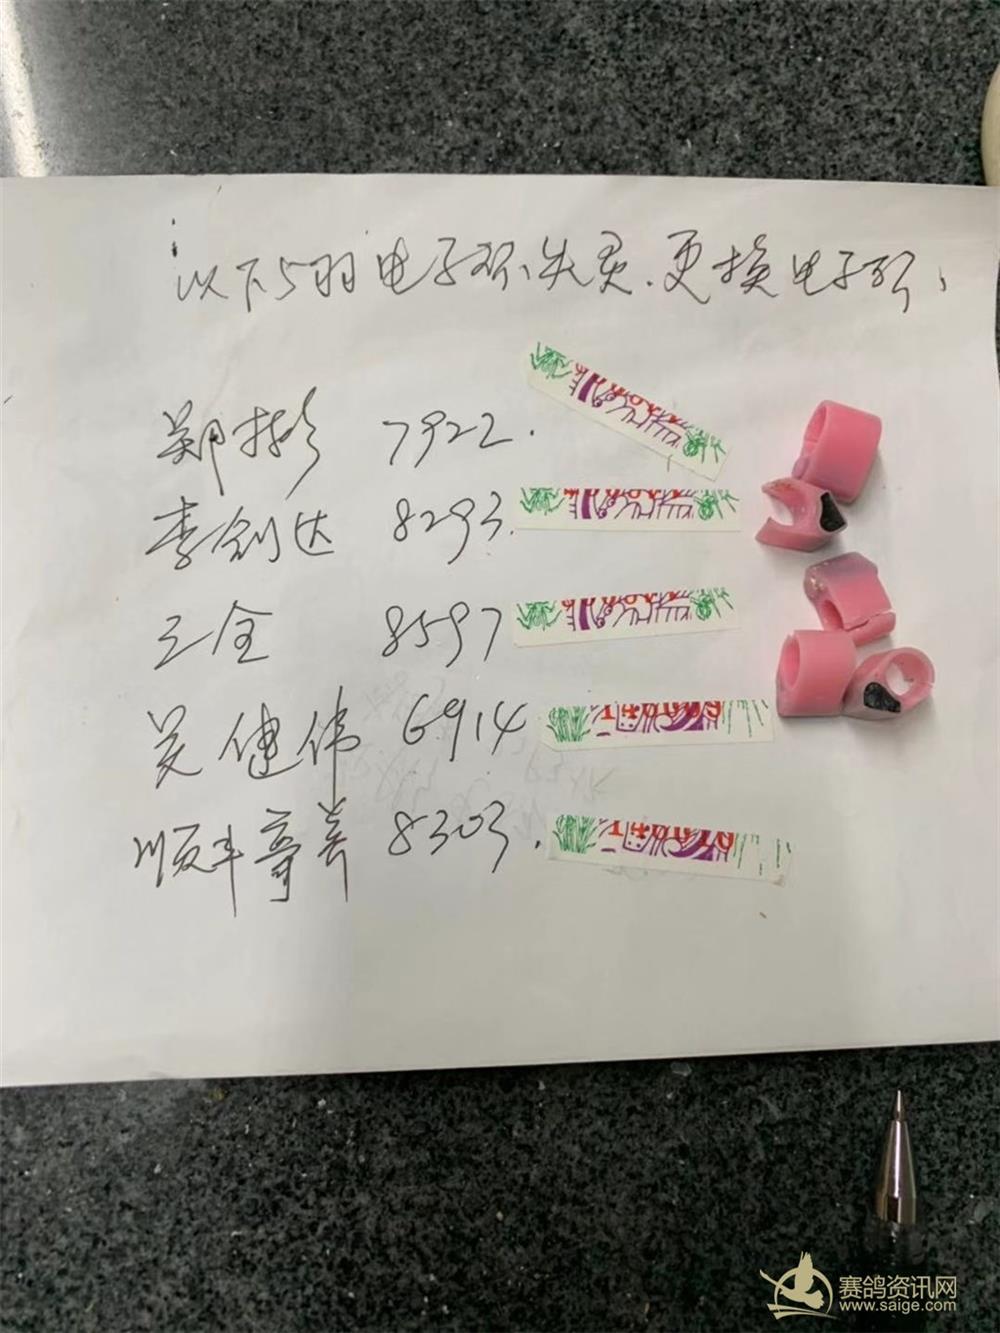 以下5羽电子环失灵.更换电子环、
郑彬 7922.
李创达 8293.
三全 8597
吴健伟 6914
140009
顺丰哥美 8303.
140010
赛鸽资讯网
www.saige.com